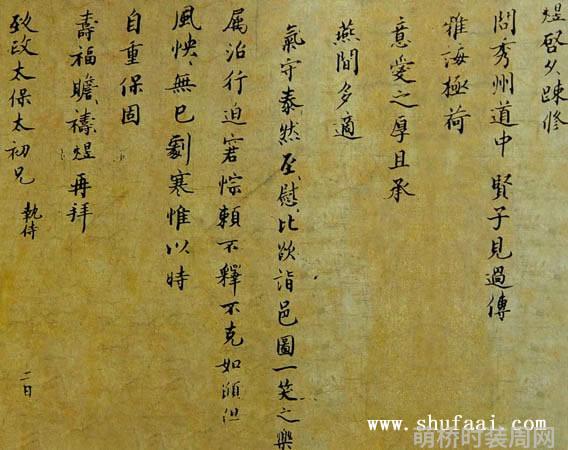 煜啓久疎修
問秀州道中賢子見過傳
雅誨極荷
意愛之厚且承
燕間多適
氣守泰然至慰比欲詣邑圖一笑之樂
属治行迫窘悰賴不釋不克如願但
風怏無已劇寒惟以時
自重保固
壽福瞻禱煜再拜
致政太保太初兄 執侍
二日
www.shufaai.com
萌桥时装周网